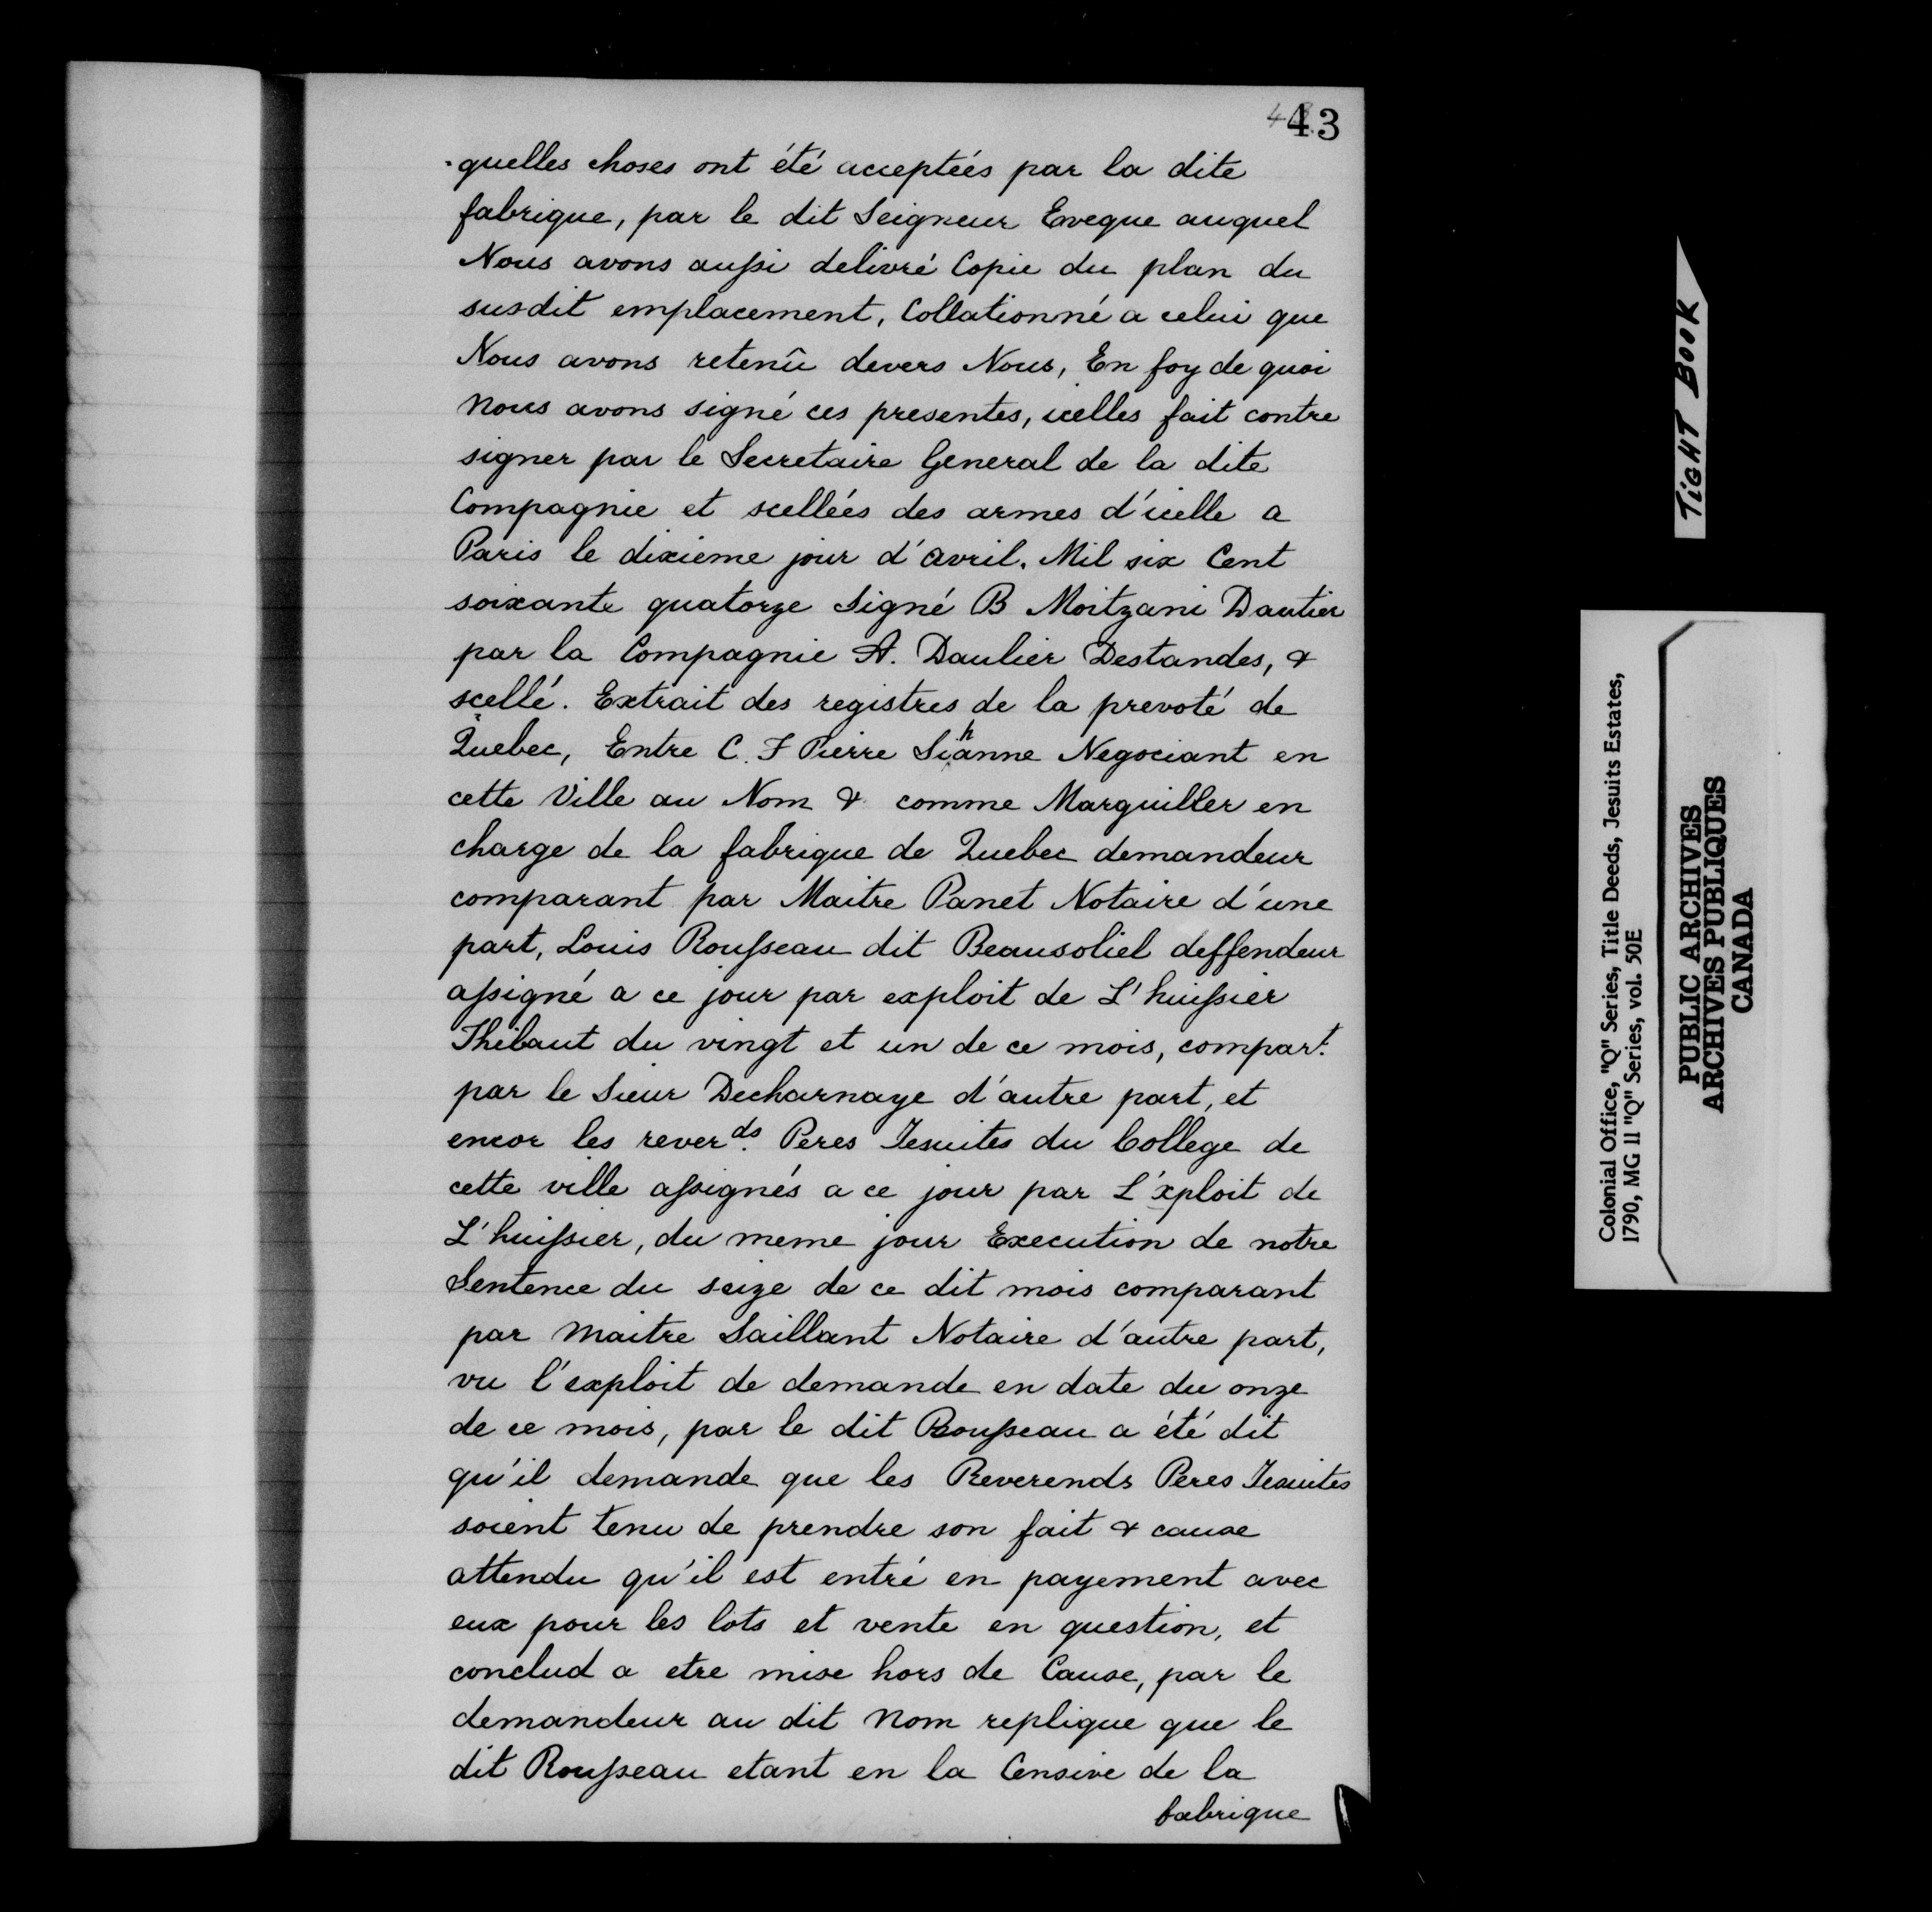 43
-quelles choses ont été acceptées par la dite
fabrique, par le dit Seigneur Eveque auquel
Nous avons aussi delivré Copie du plan du
susdit emplacement, Collationné a celui que
Nous avons retenû devers Nous, En foy de quoi
nous avons signé ces presentes, icelles fait contre
signer par le Secretaire General de la dite
Compagnie et scellées des armes d'icelle a
Paris le dixieme jour d'avril. Mil six Cent
soixante quatorze Signé B Moitzani Dautier
par la Compagnie A. Daulier Destandes, &
scellé. Extrait des registres de la prevoté de
Quebec, Entre C. F Pierre Siehanne Negociant en
cette Ville au Nom & comme Marguiller en
charge de la fabrique de Quebec demandeur
comparant par Maitre Panet Notaire d'une
part, Louis Rousseau dit Beausoliel deffendeur
assigné a ce jour par exploit de L'huissier
Thibaut du vingt et un de ce mois, compart.
par le Sieur Decharnaye d'autre part, et
encor les reverds. Peres Jesuites du College de
cette ville assignés a ce jour par L'xploit de
L'huissier, du meme jour Execution de notre
Sentence du seize de ce dit mois comparant
par maitre Saillant Notaire d'autre part,
vu l'exploit de demande en date du onze
de ce mois, par le dit Rousseau a été dit
qu'il demande que les Reverends Peres Jesuites
soient tenu de prendre son fait & cause
attendu qu'il est entré en payement avec
eux pour les lots et vente en question, et
conclud a etre mise hors de Cause, par le
demandeur au dit nom replique que le
dit Rousseau etant en la Censive de la
fabrique
TIGHT BOOK
Colonial Office, "Q" Series, Title Deeds, Jesuits Estates,
1790, MG 11 "Q" Series, vol. 50E
PUBLIC ARCHIVES
ARCHIVES PUBLIQUES
CANADA